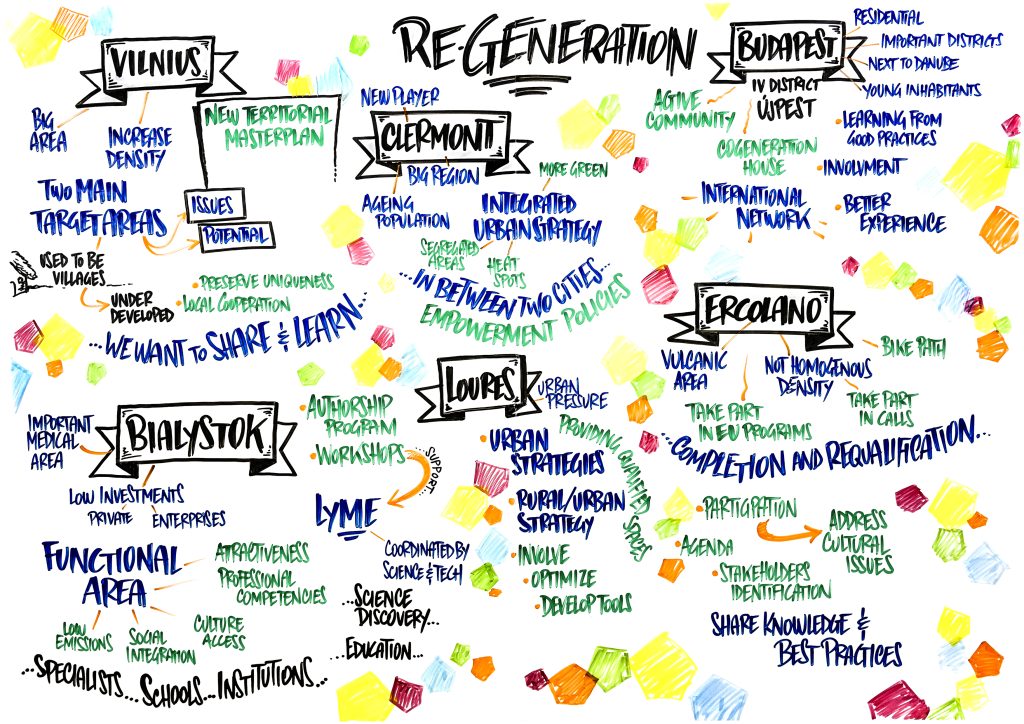 RE-GENERATION
VILNIUS
BIG
AREA
INCREASE
DENSITY
NEW TERRITORIAL
MASTERPLAN
TWO MAIN
TARGET AREAS
ISSUES
POTENTIAL
USED TO BE
VILLAGES
UNDER
DEVELOPED
PRESERVE UNIQUENESS
LOCAL COOPERATION
...WE WANT TO SHARE & LEARN...
NEW PLAYER
CLERMONT
BIG REGION
MORE GREEN
AGEING
POPULATION
INTEGRATED
URBAN STRATEGY
SEGREGATED
AREAS
HEAT
SPOTS
...IN BETWEEN TWO CITIES...
EMPOWERMENT POLICIES
BUDAPEST
RESIDENTIAL
IMPORTANT DISTRICTS
NEXT TO DANUBE
YOUNG INHABITANTS
IV DISTRICT
ÚJPEST
ACTIVE
COMMUNITY
COGENERATION
HOUSE
LEARNING FROM
GOOD PRACTICES
INVOLVMENT
INTERNATIONAL
NETWORK
BETTER
EXPERIENCE
ERCOLANO
VULCANIC
AREA
NOT HOMOGENOUS
DENSITY
BIKE PATH
TAKE PART
IN EU PROGRAMS
TAKE PART
IN CALLS
...COMPLETION AND REQUALIFICATION...
PARTICIPATION
AGENDA
ADDRESS
CULTURAL
ISSUES
STAKEHOLDERS
IDENTIFICATION
SHARE KNOWLEDGE &
BEST PRACTICES
LOURES
URBAN
PRESSURE
URBAN
STRATEGIES
PROVIDING QUALIFIED SPACES
RURAL/URBAN
STRATEGY
INVOLVE
OPTIMIZE
DEVELOP TOOLS
BIALYSTOK
IMPORTANT
MEDICAL
AREA
LOW INVESTMENTS
PRIVATE ENTERPRISES
FUNCTIONAL
AREA
ATRACTIVENESS
PROFESSIONAL
COMPETENCIES
LOW
EMISSIONS
SOCIAL
INTEGRATION
CULTURE
ACCESS
...SPECIALISTS...SCHOOLS...INSTITUTIONS...
AUTHORSHIP
PROGRAM
WORKSHOPS
...SUPPORT...
LYME
COORDINATED BY
SCIENCE & TECH
...SCIENCE
DISCOVERY...
...EDUCATION...